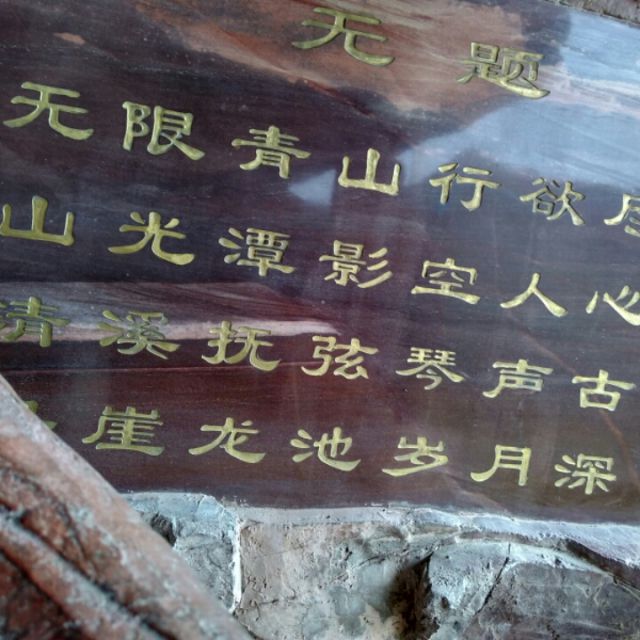 无题
无限青山行欲尽
山光潭影空人心
清溪抚弦琴声古
崖龙池岁月深